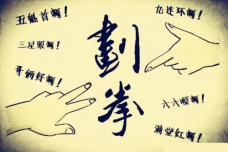 五魁首啊！
三星照啊！
哥俩好啊！
劃拳
九连环啊！
六六顺啊！
满堂红啊！